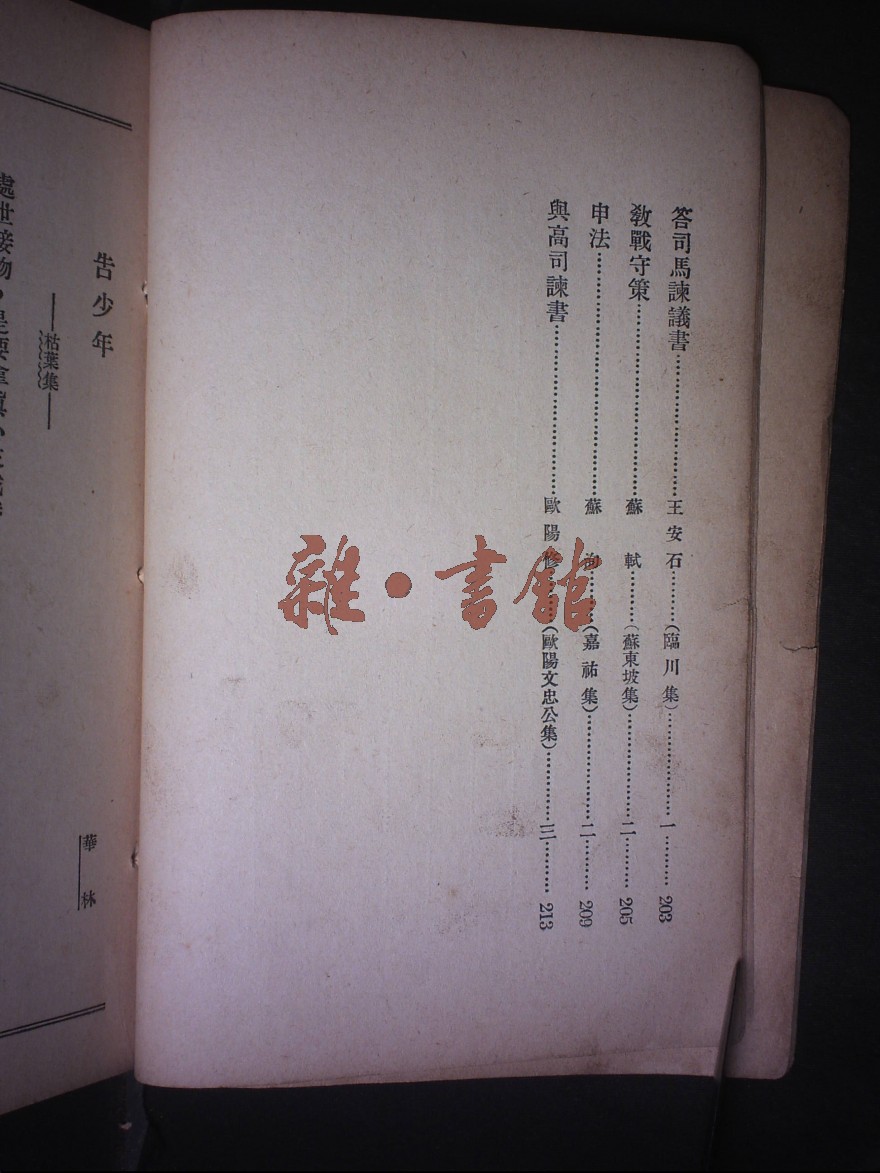 答司馬諫議書……王安石……(臨川集)……一……203
教戰守策……蘇軾……(蘇東坡集)……二……205
申法……蘇洵……(嘉祐集)……二……209
與高司諫書……歐陽修……(歐陽文忠公集)……三……213
雜·書館
告少年
——枯葉集——
華林
處世接物，是要拿真